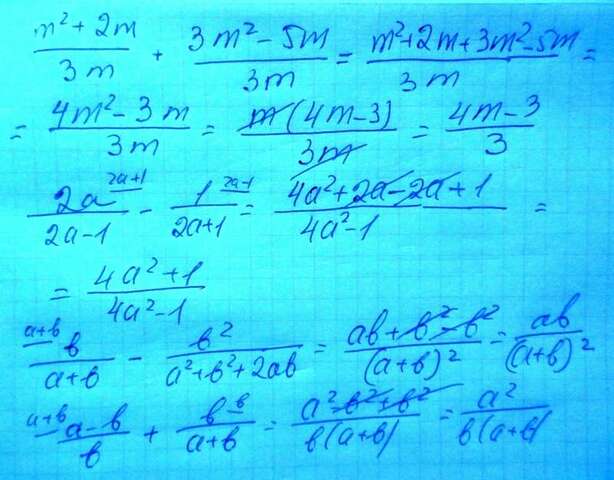 (m² + 2m)/(3m) + (3m² - 5m)/(3m) = (m² + 2m + 3m² - 5m)/(3m) =
= (4m² - 3m)/(3m) = (m(4m - 3))/(3m) = (4m - 3)/3
2a^(2a+1)/(2a-1) - 1^(2a-1)/(2a+1) = (4a² + 2a - 2a + 1)/(4a² - 1) =
= (4a² + 1)/(4a² - 1)
^(a+в) в/(a+в) - в²/(a² + в² + 2aв) = (aв + в² - в²)/(a+в)² = aв/(a+в)²
^(a+в) (a-в)/в + в^в/(a+в) = (a² - в² + в²)/(в(a+в)) = a²/(в(a+в))